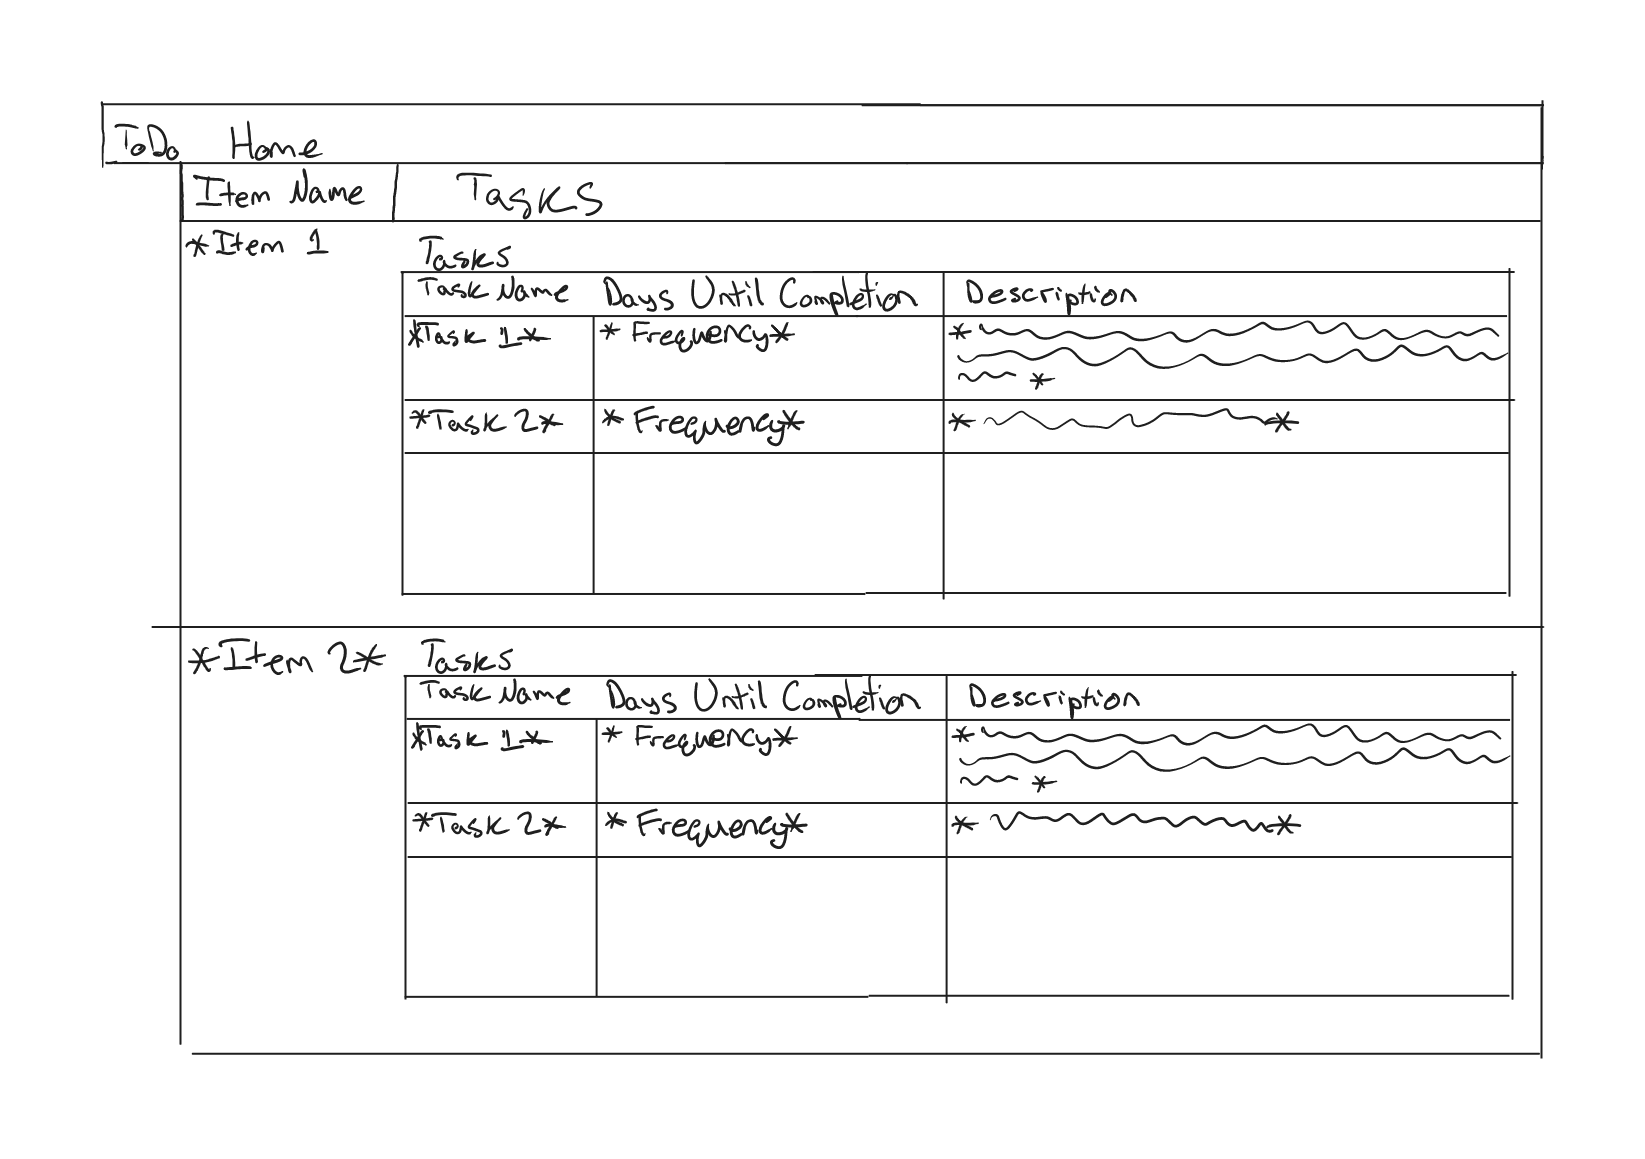 ToDo Home
Item Name Tasks
*Item 1 Tasks
Task Name Days Until Completion Description
*Task 1* *Frequency* * *
*Task 2* *Frequency* * *
*Item 2* Tasks
Task Name Days Until Completion Description
*Task 1* *Frequency* * *
*Task 2* *Frequency* * *